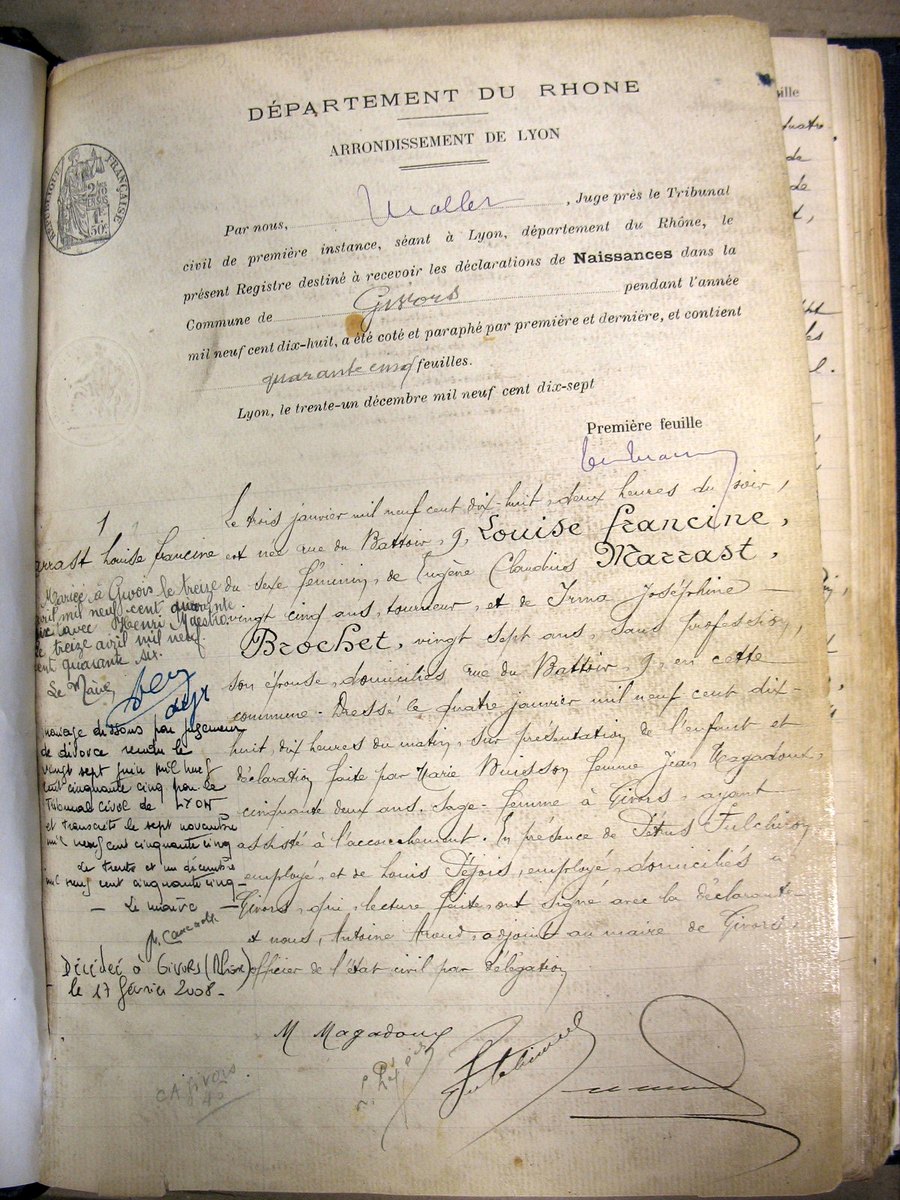 DÉPARTEMENT DU RHONE
ARRONDISSEMENT DE LYON
RÉPUBLIQUE FRANÇAISE
50c
Par nous, , Juge près le Tribunal
civil de première instance, séant à Lyon, département du Rhône, le
présent Registre destiné à recevoir les déclarations de Naissances dans la
Commune de Givors pendant l'année
mil neuf cent dix-huit, a été coté et paraphé par première et dernière, et contient
quarante cinq feuilles.
Lyon, le trente-un décembre mil neuf cent dix-sept
Première feuille
1
arrast Louise francine
Mariée à Givors le treize
avril mil neuf cent quarante
six avec Henri Maestro
le treize avril mil neuf
cent quarante six.
Le Maire
mariage dissous par jugement
de divorce rendu le
vingt sept juin mil neuf
cent cinquante cinq par le
Tribunal civil de LYON
et transcrit le sept novembre
mil neuf cent cinquante cinq
Le trente et un décembre
mil neuf cent cinquante cinq
Le maire
Décédée à GIVORS (Rhône)
le 17 février 2008.
Le trois janvier mil neuf cent dix-huit, deux heures du soir,
est née rue du Battoir, 9, Louise francine,
du sexe féminin, de Eugène Claudius Marrast,
vingt cinq ans, tourneur, et de Irma Joséphine
Brochet, vingt sept ans, sans profession,
son épouse, domiciliés rue du Battoir, 9, en cette
commune. Dressé le quatre janvier mil neuf cent dix-
huit, dix heures du matin, sur présentation de l'enfant et
déclaration faite par Marie Buisson femme Jean Magadoux,
cinquante deux ans, sage-femme à Givors, ayant
assisté à l'accouchement. En présence de Pétrus Fulchiron
employé, et de Louis Déjois, employé, domiciliés à
Givors, qui, lecture faite, ont signé avec la déclarante
et nous, Antoine Aroud, adjoint au maire de Givors,
officier de l'état civil par délégation
M Magadoux
CA Givors
uille
uatre
de